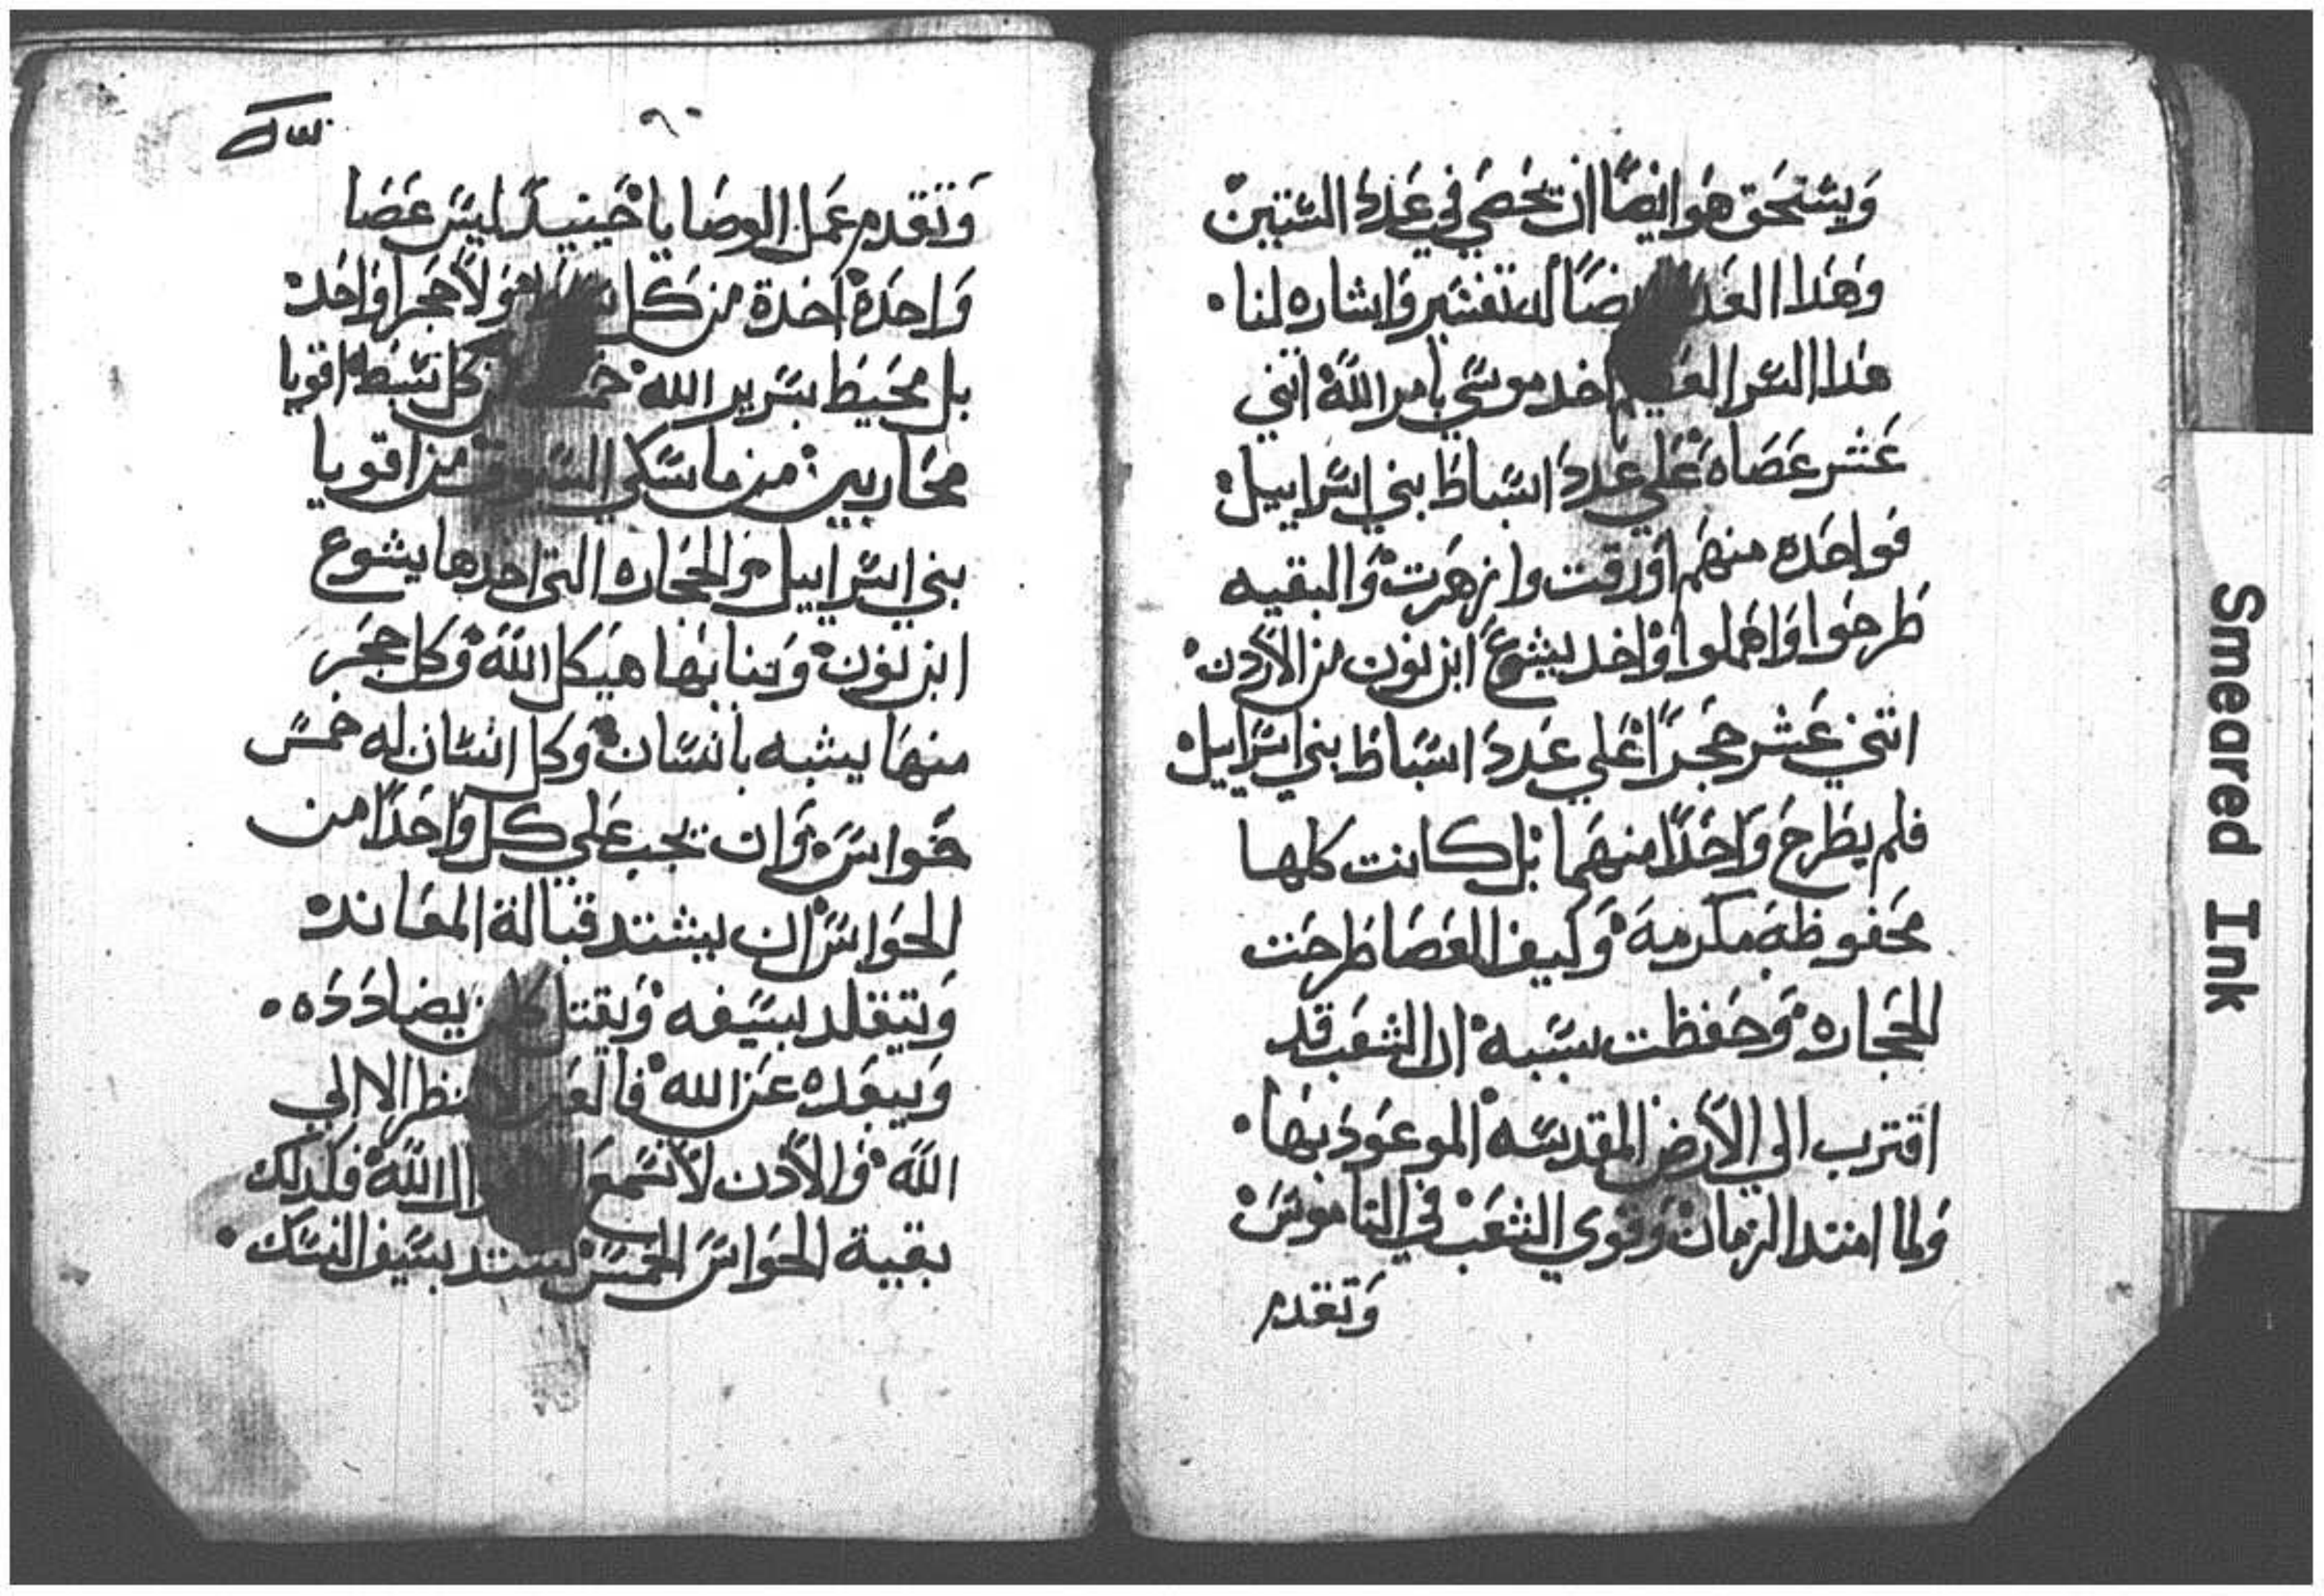 ويستحق هو ايضًا ان يحصي في عدد الستين
وهدا العدد ايضًا له تفسير واشاره لنا
هدا السر العظيم اخد موسي بامر الله اثني
عشر عصاه علي عدد اسباط بني اسراييل
فواحده منهم اورقت وازهرت والبقيه
طرحوا واهملوا واخد يشوع ابن نون من الاردن
اثني عشر حجرًا علي عدد اسباط بني اسراييل
فلم يطرح واحدًا منهما بل كانت كلها
محفوظه مكرمه وكيف العصا طرحت
الحجاره وحفظت بسببه ادا الشعب قد
اقترب الي الارض المقدسه الموعود بها
ولما امتد الزمان وقوي الشعب في الناموس
وتقدم
وتقدم عمل الوصايا حينيد ليس عصا
واحدة اخدة من كل ولا حجرا واحد
بل محيط بسرير الله كل سبط اقويا
محاربين من ماسكي السيوف من اقويا
بني اسراييل والحجاره التي اخدها يشوع
ابن نون وبنا بها هيكل الله وكل حجر
منها يشبه بانسان وكل انسان له خمس
حواس وان يجب علي كل واحدًا من
الحواس ان يشتد قبالة المعانده
ويتقلد بسيفه ويقتل كلمن يضادده
ويبعده عن الله فالعين لا تنظر الا الي
الله والادن لا تسمع الله فكدلك
بقية الحواس الخمس تستد بسيف النسك